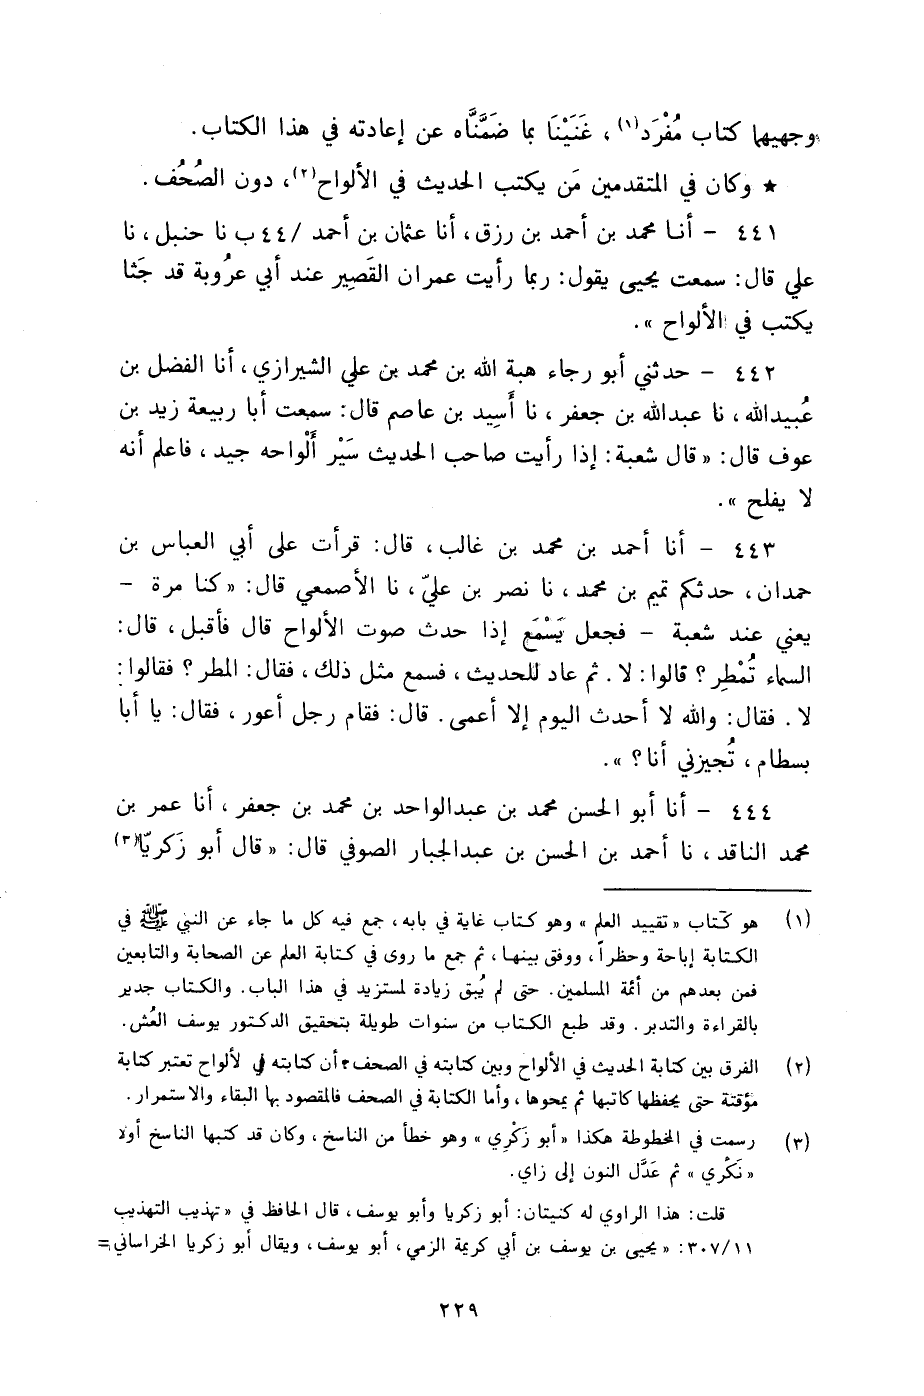 وجهيها كتاب مُفْرَد(١)، غَنَيْنَا بما ضَمَّنَّاه عن إعادته في هذا الكتاب.
★ وكان في المتقدمين مَن يكتب الحديث في الألواح(٢)، دون الصُحُف.
٤٤١ - أنا محمد بن أحمد بن رزق، أنا عثمان بن أحمد /٤٤ ب نا حنبل، نا
علي قال: سمعت يحيى يقول: ربما رأيت عمران القَصِير عند أبي عرُوبة قد جَثا
يكتب في الألواح ».
٤٤٢ - حدثني أبو رجاء هبة الله بن محمد بن علي الشيرازي، أنا الفضل بن
عُبيدالله، نا عبدالله بن جعفر، نا أَسِيد بن عاصم قال: سمعت أبا ربيعة زيد بن
عوف قال: « قال شعبة: إذا رأيت صاحب الحديث سَيْر أَلْواحه جيد، فاعلم أنه
لا يفلح ».
٤٤٣ - أنا أحمد بن محمد بن غالب، قال: قرأت على أبي العباس بن
حمدان، حدثكم تميم بن محمد، نا نصر بن عليّ، نا الأصمعي قال: « كنا مرة -
يعني عند شعبة - فجعل يَسْمَع إذا حدث صوت الألواح قال فأقبل، قال:
السماء تُمْطِر؟ قالوا: لا. ثم عاد للحديث، فسمع مثل ذلك، فقال: المطر؟ فقالوا:
لا. فقال: والله لا أحدث اليوم إلا أعمى. قال: فقام رجل أعور، فقال: يا أبا
بسطام، تُجيزني أنا؟ ».
٤٤٤ - أنا أبو الحسن محمد بن عبدالواحد بن محمد بن جعفر، أنا عمر بن
محمد الناقد، نا أحمد بن الحسن بن عبدالجبار الصوفي قال: « قال أبو زَكريّا(٣)
(١) هو كتاب « تقييد العلم » وهو كتاب غاية في بابه، جمع فيه كل ما جاء عن النبي ﷺ في
الكتابة إباحة وحظراً، ووفق بينها، ثم جمع ما روى في كتابة العلم عن الصحابة والتابعين
فمن بعدهم من أئمة المسلمين. حتى لم يُبق زيادة لمستزيد في هذا الباب. والكتاب جدير
بالقراءة والتدبر. وقد طبع الكتاب من سنوات طويلة بتحقيق الدكتور يوسف العُش.
(٢) الفرق بين كتابة الحديث في الألواح وبين كتابته في الصحف، أن كتابته في الألواح تعتبر كتابة
مؤقتة حتى يحفظها كاتبها ثم يمحوها، وأما الكتابة في الصحف فالمقصود بها البقاء والاستمرار.
(٣) رسمت في المخطوطة هكذا « أبو زَكْرِي » وهو خطأ من الناسخ، وكان قد كتبها الناسخ أولا
« نَكْري » ثم عَدَّل النون إلى زاي.
قلت: هذا الراوي له كنيتان: أبو زكريا وأبو يوسف، قال الحافظ في « تهذيب التهذيب
٣٠٧/١١: « يحيى بن يوسف بن أبي كريمة الزمي، أبو يوسف، ويقال أبو زكريا الخراساني =
٢٢٩